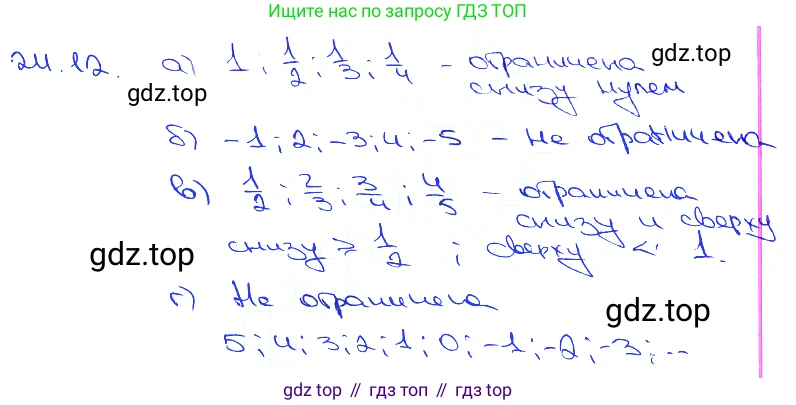 Ищите нас по запросу ГДЗ ТОП
24.12. а) 1 ; 1/2 ; 1/3 ; 1/4 – ограничена
снизу нулем
gdz.top
gdz.top
б) -1 ; 2 ; -3 ; 4 ; -5 – не ограничена
в) 1/2 ; 2/3 ; 3/4 ; 4/5 – ограничена
снизу и сверху
снизу ≥ 1/2 ; сверху < 1.
gdz.top
г) Не ограничена
gdz.top
5 ; 4 ; 3 ; 2 ; 1 ; 0 ; -1 ; -2 ; -3 ; ...
gdz top // гдз топ // gdz top